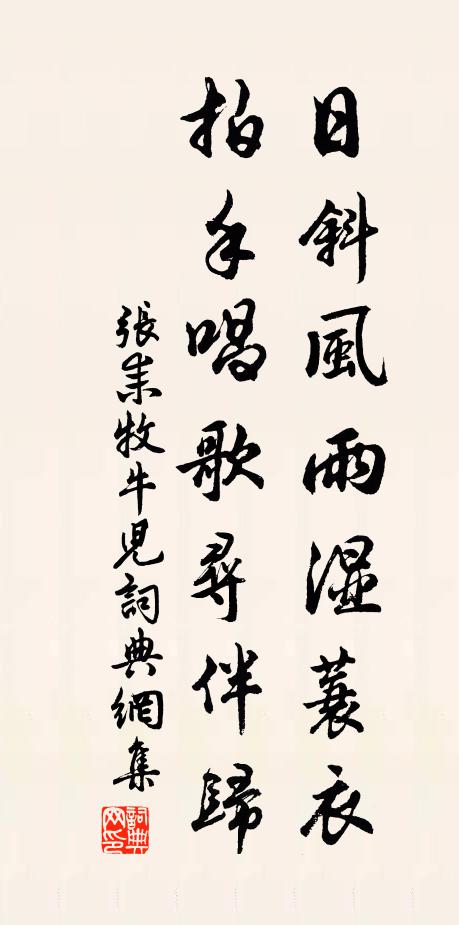 日斜風雨濕蓑衣
拍手唱歌尋伴歸
張耒牧牛兒詞典網集
詞典網印